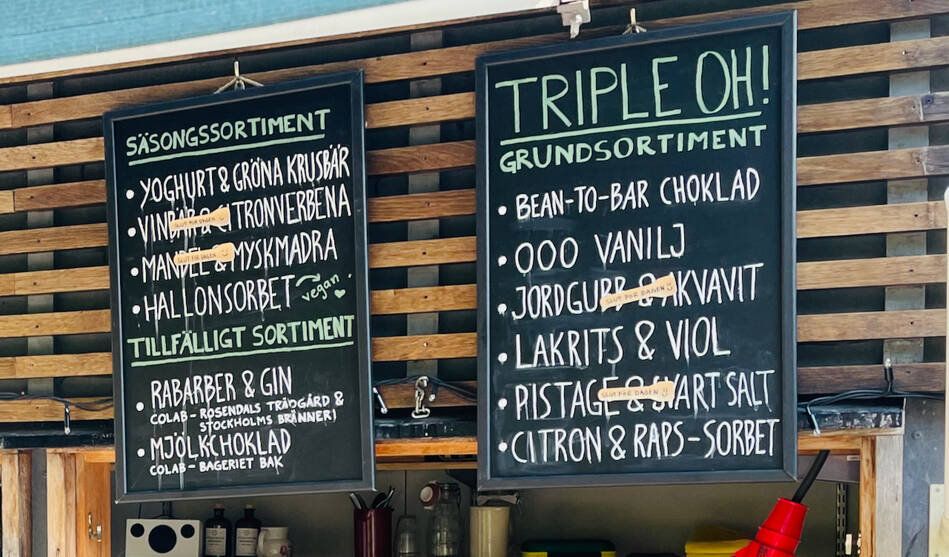 SÄSONGSSORTIMENT
• YOGHURT & GRÖNA KRUSBÄR
• VINBÄR & CITRONVERBENA
SLUT FÖR DAGEN
• MANDEL & MYSKMADRA
SLUT FÖR DAGEN
• HALLONSORBET → vegan
TILLFÄLLIGT SORTIMENT
• RABARBER & GIN
COLAB - ROSENDALS TRÄDGÅRD &
STOCKHOLMS BRÄNNERI
• MJÖLKCHOKLAD
COLAB - BAGERIET BAK
TRIPLE OH!
GRUNDSORTIMENT
• BEAN-TO-BAR CHOKLAD
• OOO VANILJ
• JORDGUBB & AKVAVIT
SLUT FÖR DAGEN
• LAKRITS & VIOL
• PISTAGE & SVART SALT
SLUT FÖR DAGEN
• CITRON & RAPS-SORBET